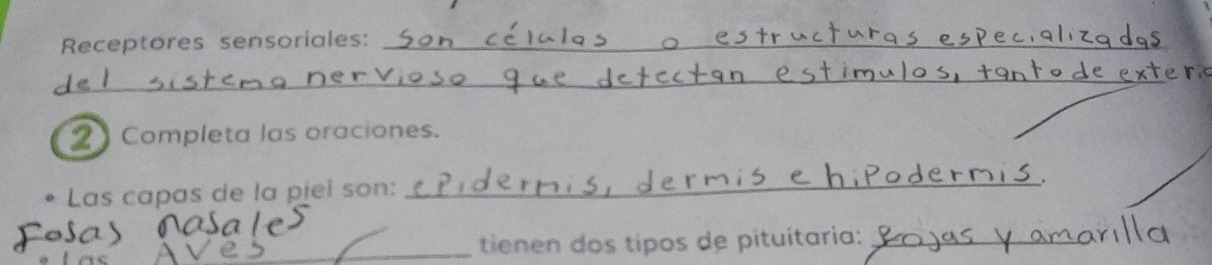 Receptores sensoriales: Son células o estructuras especializadas
del sistema nervioso que detectan estimulos, tanto de exterio
2 Completa las oraciones.
• Las capas de la piel son: epidermis, dermis e hipodermis.
Fosas nasales
• Las Aves tienen dos tipos de pituitaria: Rojas y amarilla